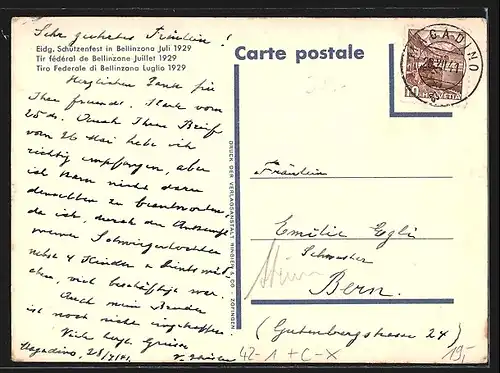 Sehr geehrtes Fräulein!
Eidg. Schützenfest in Bellinzona Juli 1929
Tir fédéral de Bellinzone Juillet 1929
Tiro Federale di Bellinzona Luglio 1929
Herzlichen Dank für
Ihre freundl. Karte vom
25 ds. Auch Ihren Brief
vom 26 Mai habe ich
richtig empfangen, aber
ich kam nicht dazu
denselben zu beantworten,
da ich, durch den
meiner Schwiegertochter
nebst 4 Kinder
viel beschäftigt war.
Auch mein Bruder
ist noch nicht eingetroffen.
Viele herzl. Grüsse
Magadino, 28/7/41.
Carte postale
MAGADINO
10 HELVETIA
DRUCK DER VERLAGSANSTALT RINGIER & CO · ZOFINGEN
Fräulein
Emilie Egli
Schwester
Bern.
(Gutenbergstrasse 24)
42-1 + C-X
19,-